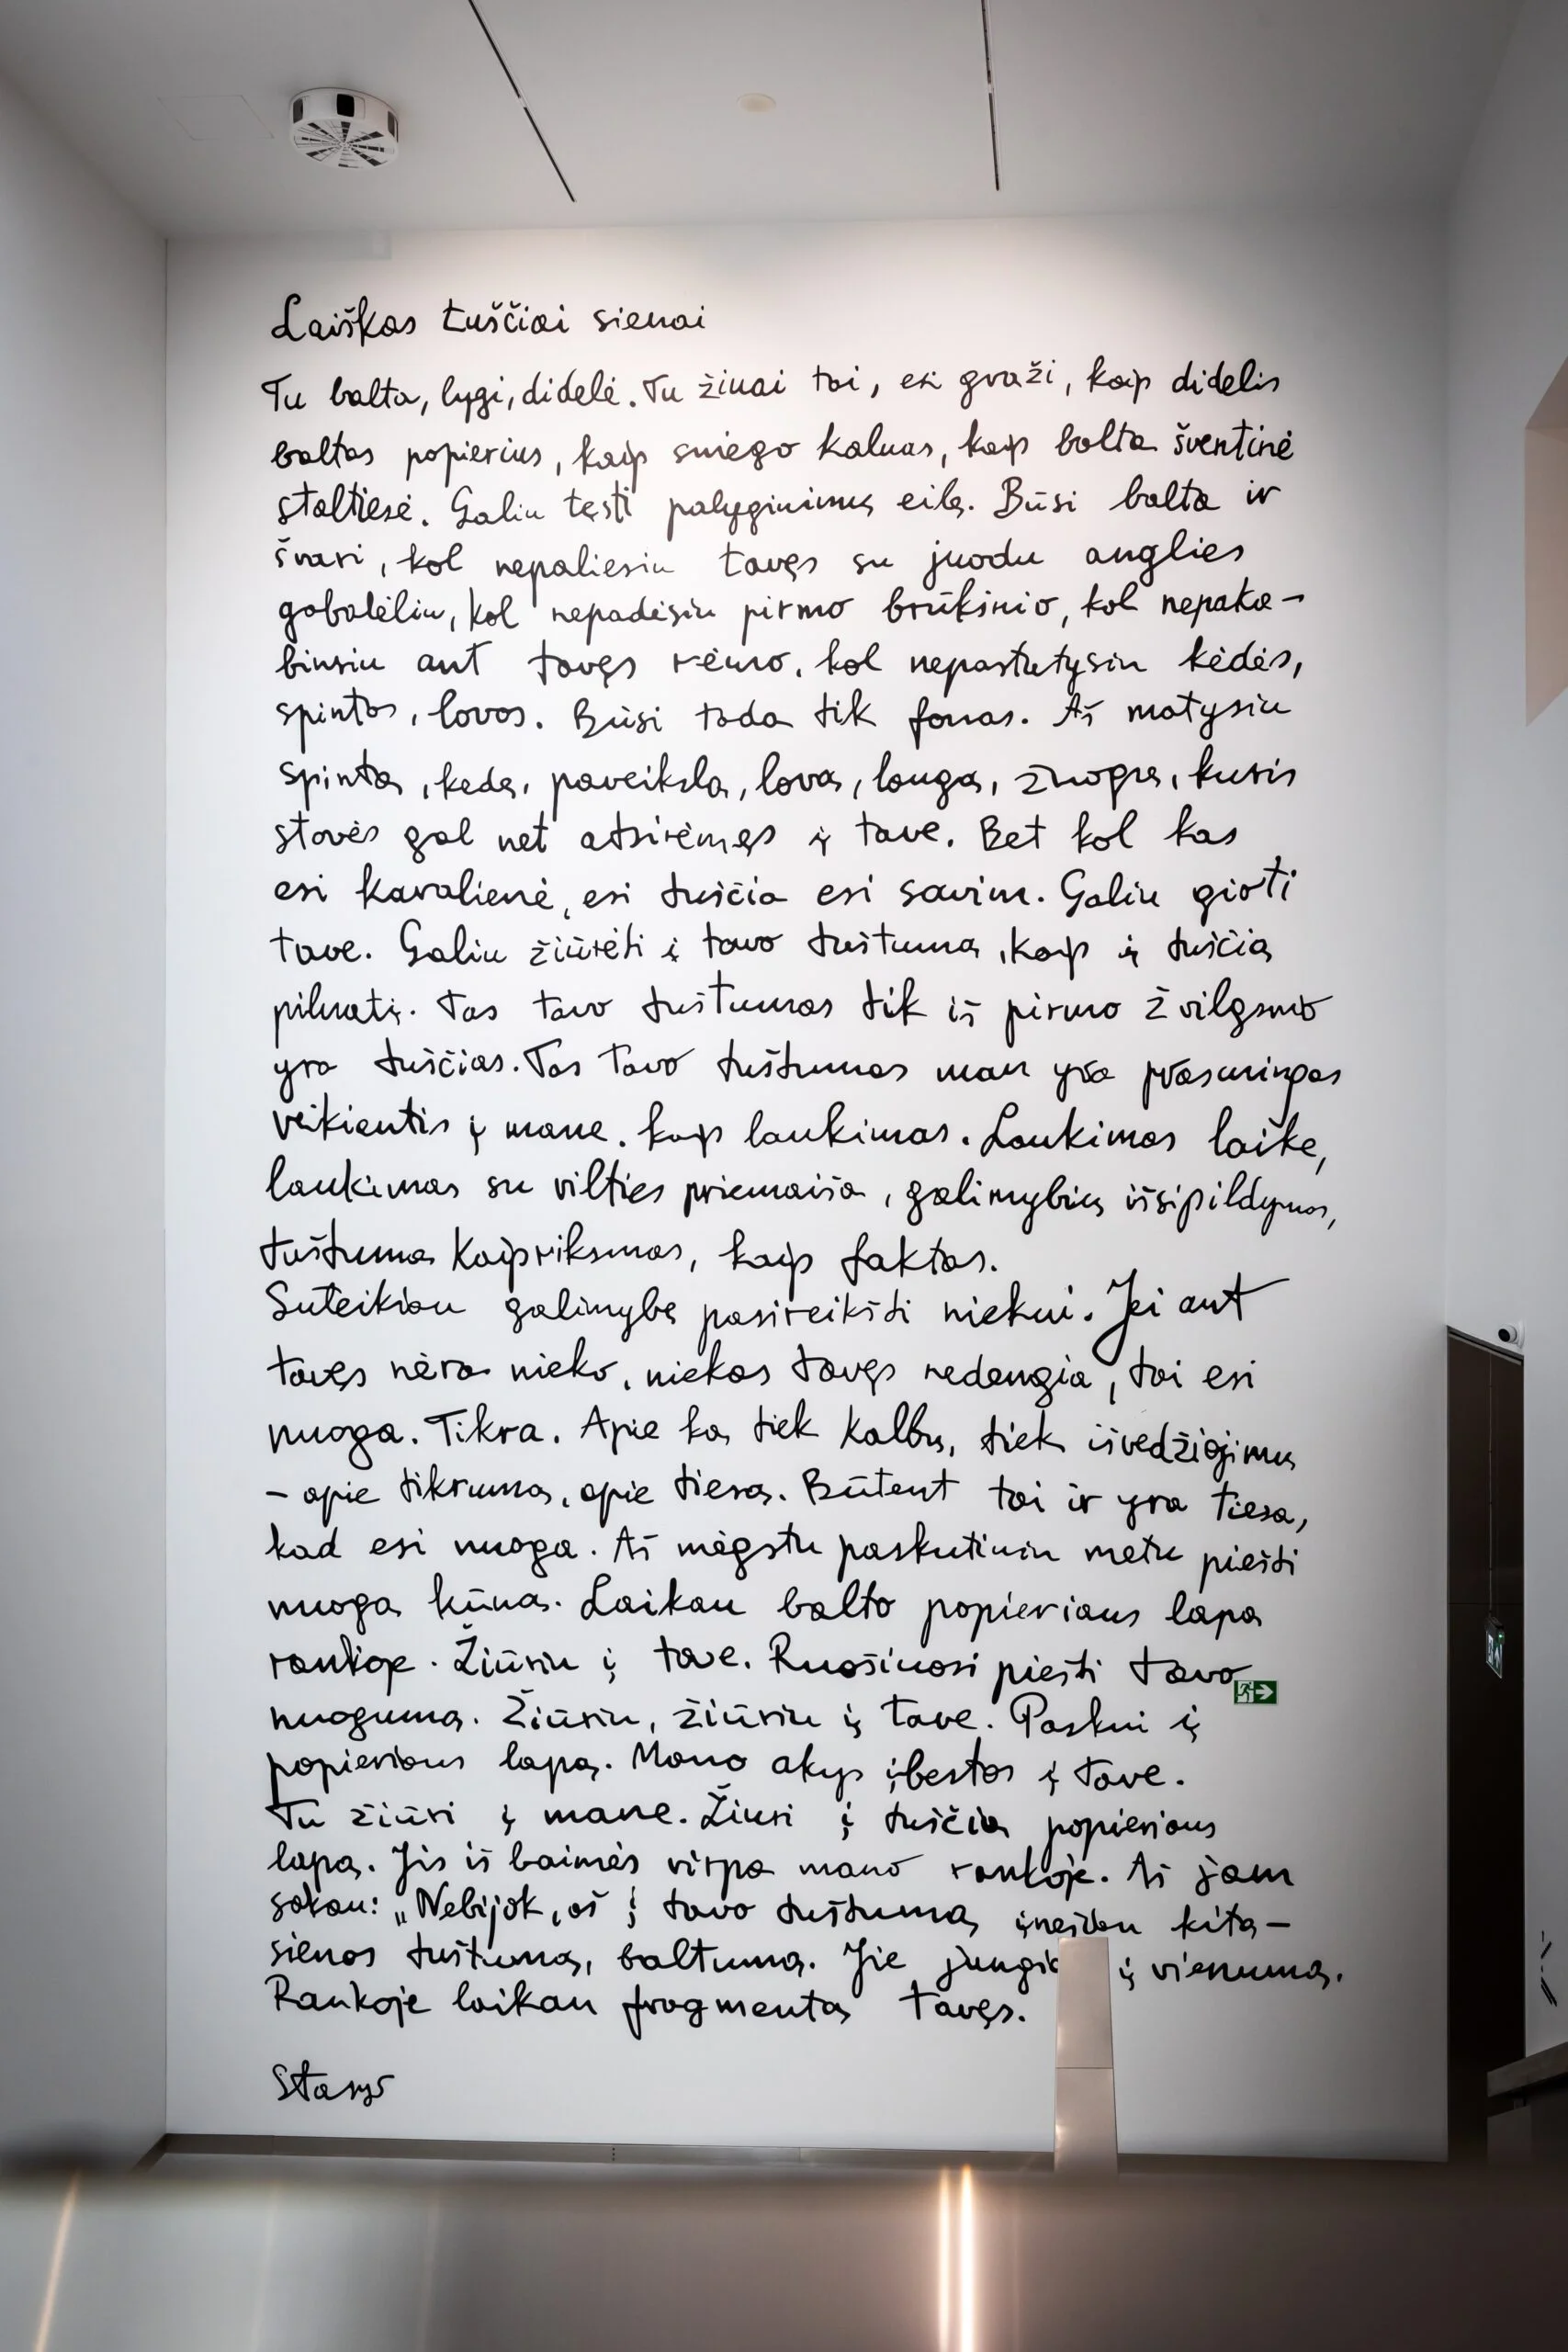 Laiškas tuščiai sienai
Tu balta, lygi, didelė. Tu žinai tai, esi graži, kaip didelis
baltas popierius, kaip sniego kalnas, kaip balta šventinė
staltiesė. Galiu tęsti palyginimų eilę. Būsi balta ir
švari, kol nepaliesiu tavęs su juodu anglies
gabalėliu, kol nepadėsiu pirmo brūkšnio, kol nepaka-
binsiu ant tavęs rėmo, kol nepastatysiu kėdės,
spintos, lovos. Būsi tada tik fonas. Aš matysiu
spintą, kėdę, paveikslą, lovą, langą, žmogų, kuris
stovės gal net atsirėmęs į tave. Bet kol kas
esi karalienė, esi tuščia esi savim. Galiu girti
tave. Galiu žiūrėti į tavo tuštumą, kaip į tuščią
pilnatį. Tas tavo tuštumas tik iš pirmo žvilgsnio
yra tuščias. Tas tavo tuštumas man yra prasmingas
veikiantis į mane. kaip laukimas. Laukimas laike,
laukimas su vilties priemaiša, galimybių išsipildymas,
tuštuma kaip riksmas, kaip faktas.
Suteikiau galimybę pasireikšti niekui. Jei ant
tavęs nėra nieko, niekas tavęs nedengia, tai esi
nuoga. Tikra. Apie ką tiek kalbų, tiek išvedžiojimų
– apie tikrumą, apie tiesą. Būtent tai ir yra tiesa,
kad esi nuoga. Aš mėgstu paskutiniu metu piešti
nuogą kūną. Laikau balto popieriaus lapą
rankoje. Žiūriu į tave. Ruošiuosi piešti tavo
nuogumą. Žiūriu, žiūriu į tave. Paskui į
popieriaus lapą. Mano akys įbestos į tave.
Tu žiūri į mane. Žiuri į tuščią popieriaus
lapą. Jis iš baimės virpa mano rankoje. Aš jam
sakau: „Nebijok, aš į tavo tuštumą įnešiu kitą –
sienos tuštumą, baltumą. Jie į vienumą.
Rankoje laikau fragmentą tavęs.
Stasys